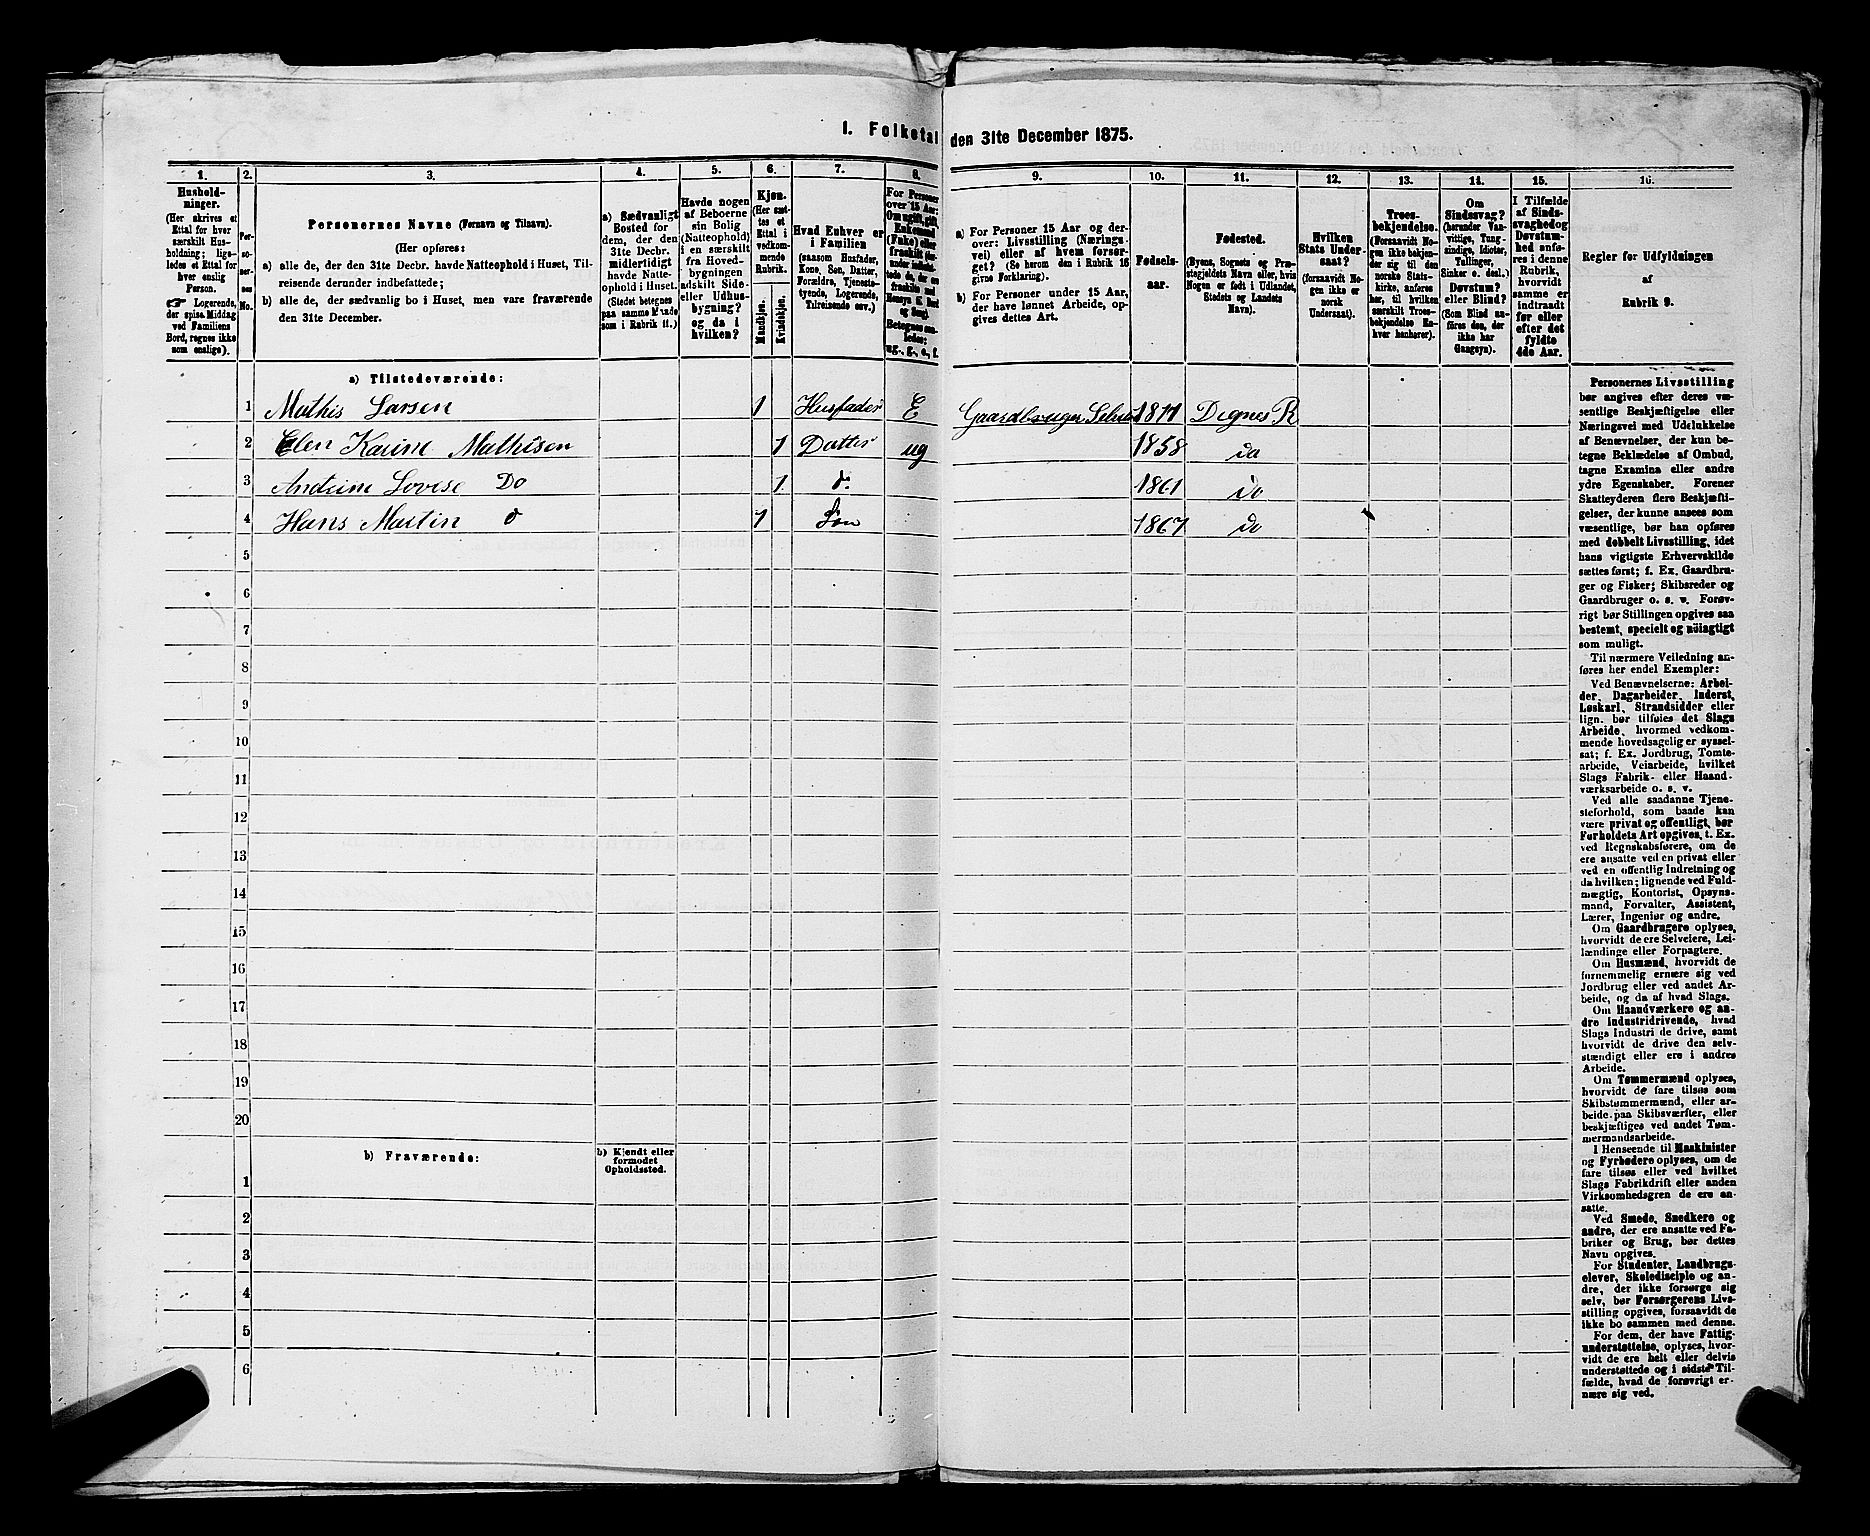 I. Folketal den 31te December 1875.
1. 2. 3. 4. 5. 6. 7. 8. 9. 10. 11. 12. 13. 14. 15. 16.
Husholdninger.
(Her skrives et
Ettal for hver
særskilt Husholdning;
ligeledes et Ettal for
hver enslig
Person.
☞ Logerende,
der spise Middag
ved Familiens
Bord, regnes ikke
som enslige).
Personernes No.
Personernes Navne (Fornavn og Tilnavn).
(Her opføres:
a) alle de, der den 31te Decbr. havde Natteophold i Huset, Tilreisende
derunder indbefattede;
b) alle de, der sædvanlig bo i Huset, men vare fraværende
den 31te December.
a) Sædvanligt
Bosted for
dem, der den
31te Decbr.
midlertidigt
havde Natteophold
i Huset.
(Stedet betegnes
paa samme Maade
som i Rubrik 11.)
Havde nogen
af Beboerne
sin Bolig
(Natteophold)
i en særskilt
fra Hovedbygningen
adskilt Side-
eller Udhusbygning?
og da i
hvilken?
Kjøn.
(Her sættes
et
Ettal i
vedkommende
Rubrik.
Mandkjøn.
Kvindekjøn.
Hvad Enhver er
i Familien
(saasom Husfader,
Kone, Søn, Datter,
Forældre, Tjenestetyende,
Logerende,
Tilreisende osv.)
For Personer
over 15 Aar:
Om ugift, gift
Enkemand
(Enke) eller
fraskilt
Betegnes saaledes:
ug., g., e., f.
a) For Personer 15 Aar og derover:
Livsstilling (Næringsvei)
eller af hvem forsørget?
(Se herom den i Rubrik 16
givne Forklaring).
b) For Personer under 15 Aar,
der have lønnet Arbeide, opgives
dettes Art.
Fødselsaar.
Fødested.
(Byens, Sognets og Præstegjeldets
Navn eller, hvis
Nogen er født i Udlandet,
Stedets og Landets
Navn).
Hvilken
Stats Undersaat?
(forsaavidt Nogen
ikke er
norsk
Undersaat).
Troesbekjendelse.
(Forsaavidt Nogen
ikke bekjender
sig til den
norske Statskirke,
anføres
her, til hvilken
særskilt Troesbekjendelse
Enhver
henhører).
Om
Sindssvag?
(herunder Vanvittige,
Tungsindige,
Idioter,
Tullinger,
Sinker o. desl.)
Døvstum?
eller Blind?
(Som Blind anføres
den, der
ikke har
Gangsyn).
I Tilfælde
af Sindssvaghed
og
Døvstumhed
anføres
i denne
Rubrik,
hvorvidt
samme er
indtraadt
før eller
efter det
fyldte
4de Aar.
Regler for Udfyldningen
af
Rubrik 9.
a) Tilstedeværende:
1 Mathis Larsen 1 Husfader E Gaardbruger 1811 Degnes R
2 Elen Karine Mathisen 1 Datter ug 1858 do
3 Andrine Lovise Do 1 d. 1861 do
4 Hans Martin d 1 Søn 1867 do
5
6
7
8
9
10
11
12
13
14
15
16
17
18
19
20
b) Fraværende: b) Kjendt eller
formodet
Opholdssted.
1
2
3
4
5
6
Personernes Livsstilling
bør angives efter deres væsentlige
Beskjæftigelse eller
Næringsvei med Udelukkelse
af Benævnelser, der kun betegne
Beklædelse af Ombud,
tagne Examina eller andre
ydre Egenskaber. Forener
Skatteyderen flere Beskjæftigelser,
der kunne ansees som
væsentlige, bør han opføres
med dobbelt Livsstilling, idet
hans vigtigste Erhvervskilde
sættes først; f. Ex. Gaardbruger
og Fisker; Skibsreder og
Gaardbruger o. s. v. Forøvrigt
bør Stillingen opgives saa
bestemt, specielt og nöiagtigt
som muligt.
Til nærmere Veiledning anføres
her endel Exempler:
Ved Benævnelserne: Arbeider,
Dagarbeider, Inderst,
Løskarl, Strandsidder eller
lign. bør tilføies det Slags
Arbeide, hvormed vedkommende
hovedsagelig er sysselsat;
f. Ex. Jordbrug, Tomtearbeide,
Veiarbeide, hvilket
Slags Fabrik- eller Haandværksarbeide
o. s. v.
Ved alle saadanne Tjenesteforhold,
som baade kan
være privat og offentligt, bør
Forholdets Art opgives, t. Ex.
ved Regnskabsførere, om de
ere ansatte ved en privat eller
ved en offentlig Indretning og
da hvilken; lignende ved Fuldmægtig,
Kontorist, Opsynsmand,
Forvalter, Assistent,
Lærer, Ingeniør og andre.
Om Gaardbrugere oplyses,
hvorvidt de ere Selveiere, Leilændinge
eller Forpagtere.
Om Husmænd, hvorvidt de
fornemmelig ernære sig ved
Jordbrug eller ved andet Arbeide,
og da af hvad Slags.
Om Haandværkere og andre
industridrivende, hvad
Slags Industri de drive, samt
hvorvidt de drive den selvstændigt
eller ere i andres
Arbeide.
Om Tømmermænd oplyses,
hvorvidt de fare tilsøs som
Skibstømmermænd, eller arbeide
paa Skibsværfter, eller
beskjæftiges ved andet Tømmermandsarbeide.
I Henseende til Maskinister
og Fyrbødere oplyses, om de
fare tilsøs eller ved hvilket
Slags Fabrikdrift eller anden
Virksomhedsgren de ere ansatte.
Ved Smede, Snedkere og
andre, der ere ansatte ved Fabriker
og Brug, bør dettes
Navn opgives.
For Studenter, Landbrugselever,
Skoledisciple og andre,
der ikke forsørge sig
selv, bør Forsørgerens Livsstilling
opgives, forsaavidt de
ikke bo sammen med denne.
For dem, der have Fattigunderstøttelse,
oplyses, hvorvidt
de ere helt eller delvis
understøttede og i sidste Tilfælde,
hvad de forøvrigt ernære
sig ved.